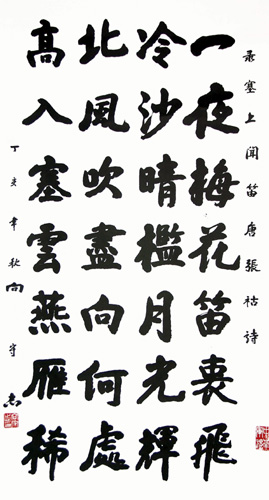 录塞上聞笛唐張祜詩
一夜梅花笛裏飛
冷沙晴檻月光輝
北風吹盡向何處
髙入塞雲燕雁稀
丁亥年秋向守志